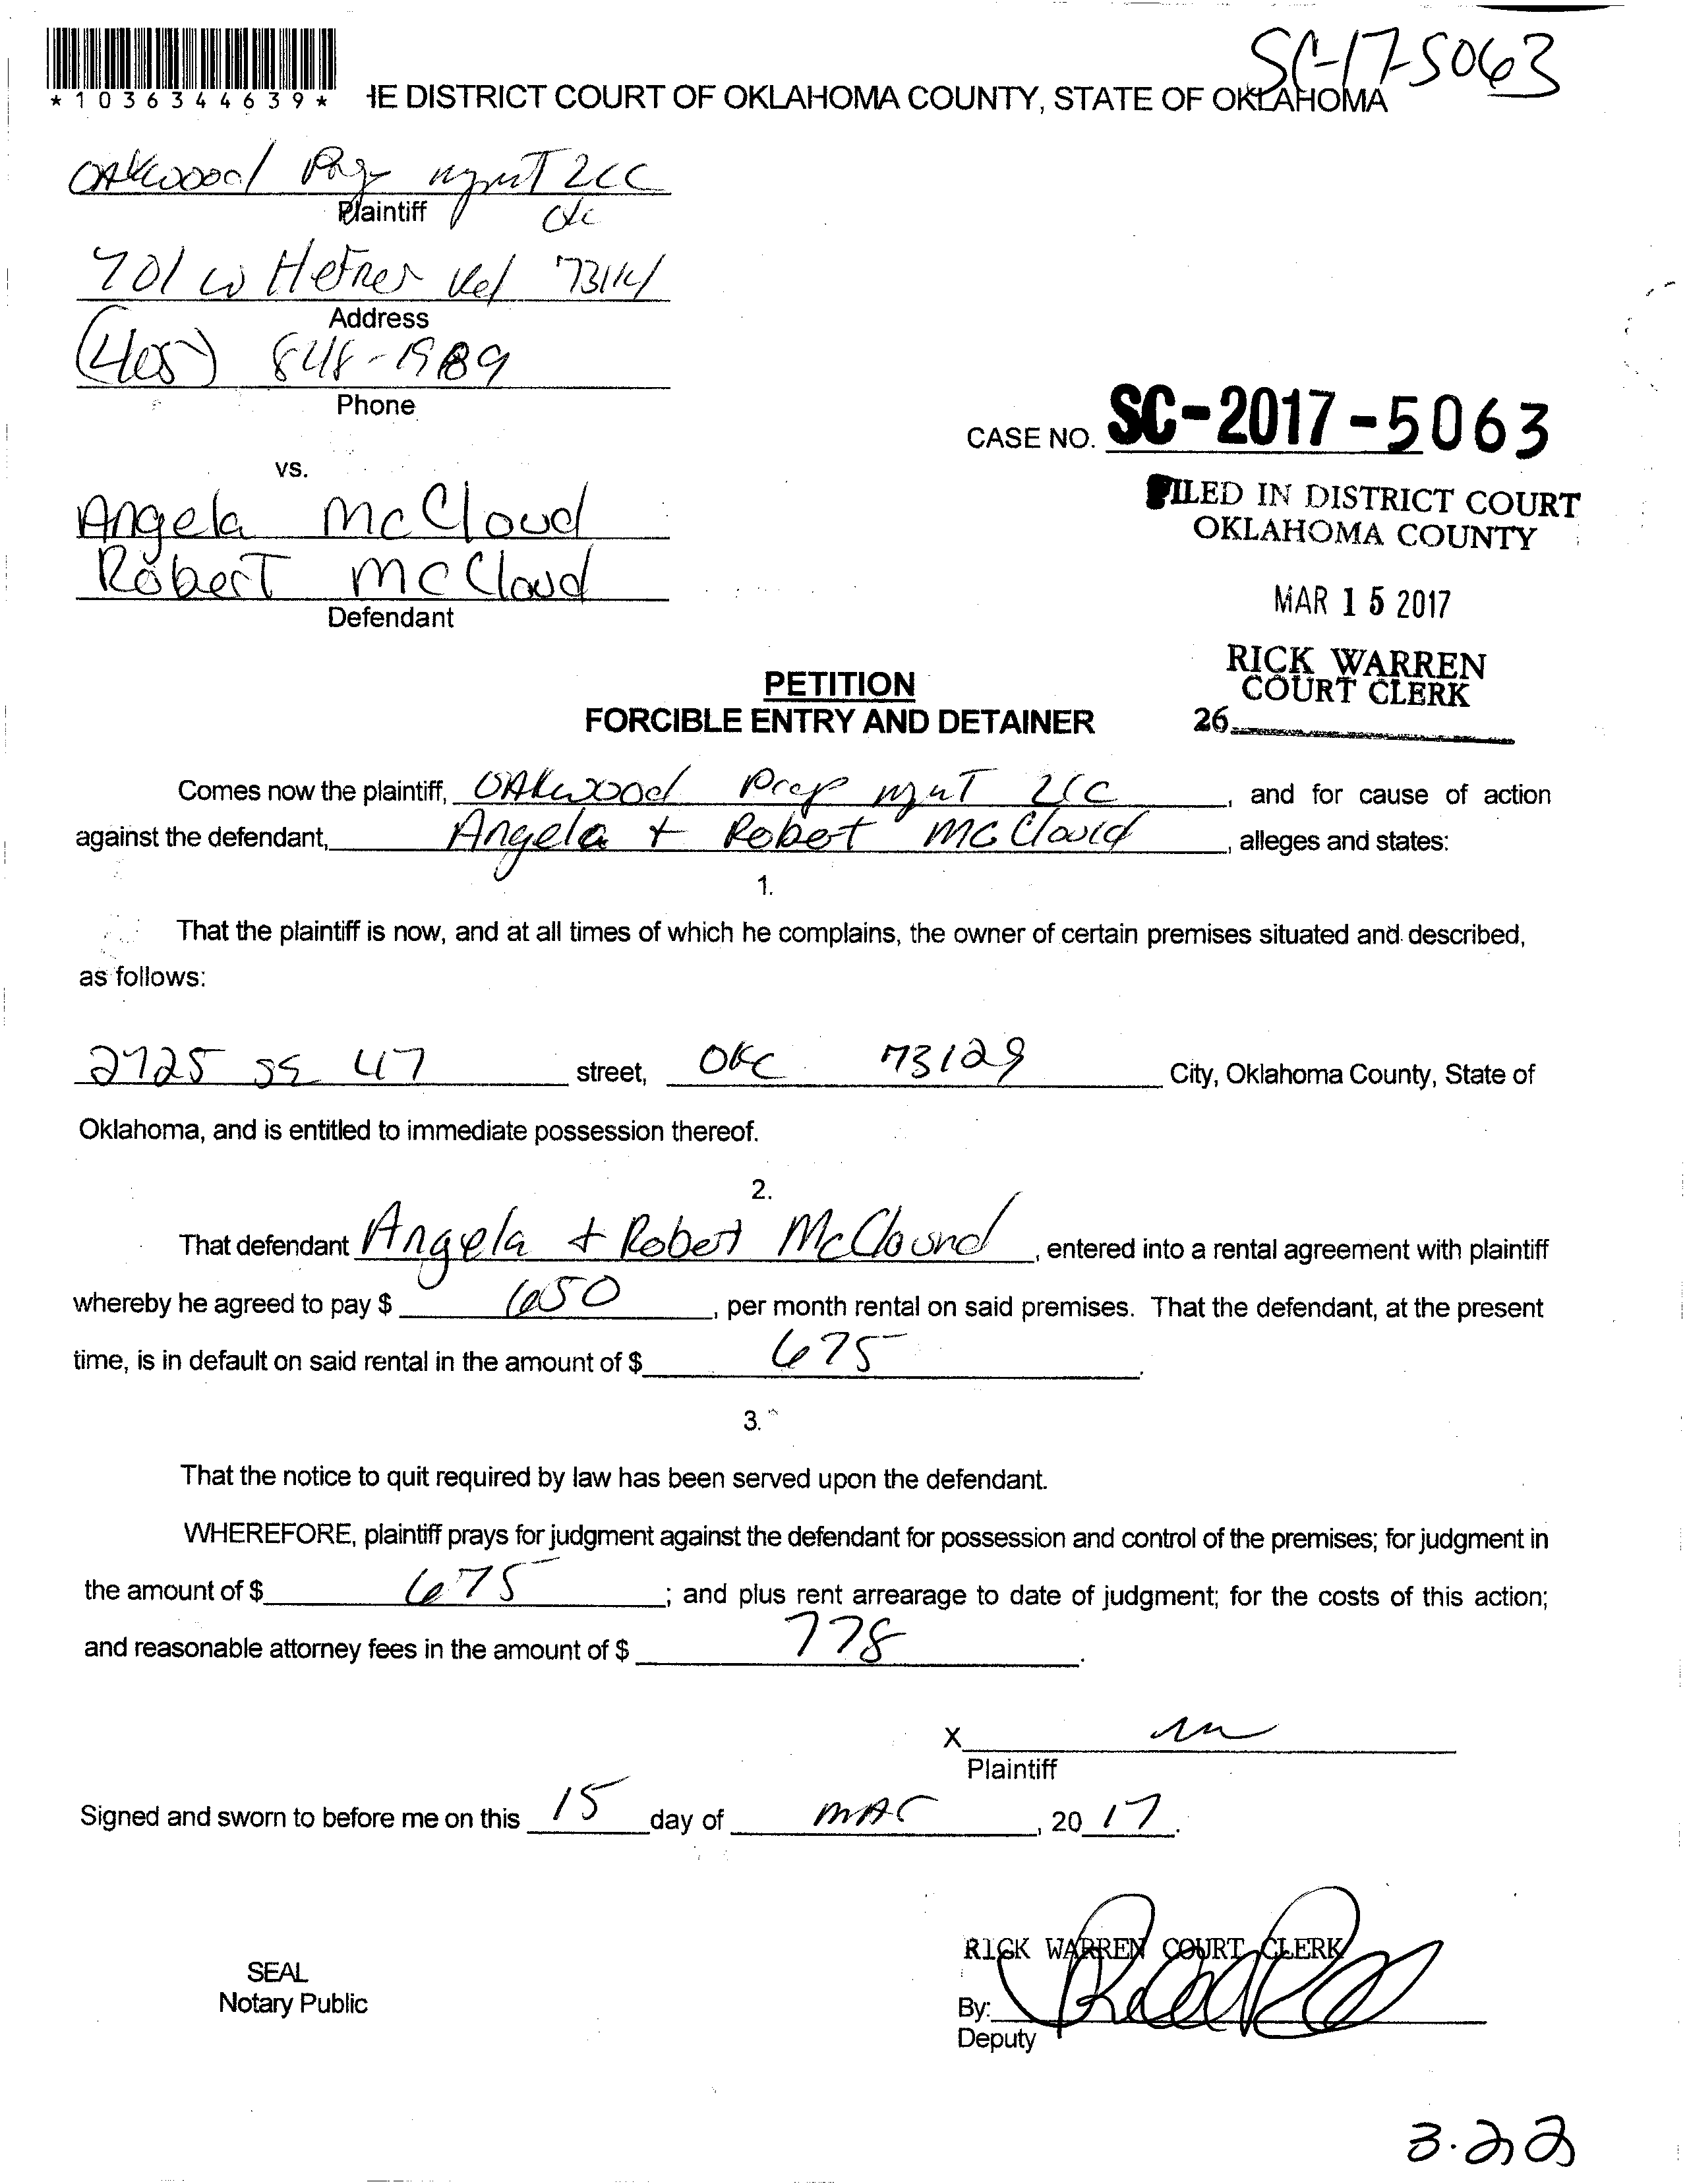 SC-17-5063
*1036344639*
IE DISTRICT COURT OF OKLAHOMA COUNTY, STATE OF OKLAHOMA
Oakwood Prop mgmt LLC
Plaintiff
701 W Hefner Rd 73114
Address
(405) 848-1989
Phone
CASE NO. SC-2017-5063
vs.
FILED IN DISTRICT COURT
OKLAHOMA COUNTY
Angela McCloud
Robert McCloud
Defendant
MAR 15 2017
RICK WARREN
COURT CLERK
26
PETITION
FORCIBLE ENTRY AND DETAINER
Comes now the plaintiff, Oakwood Prop mgmt LLC, and for cause of action
against the defendant, Angela + Robert McCloud, alleges and states:
1.
That the plaintiff is now, and at all times of which he complains, the owner of certain premises situated and described,
as follows:
2725 SE 47 street, OKC 73129 City, Oklahoma County, State of
Oklahoma, and is entitled to immediate possession thereof.
2.
That defendant Angela + Robert McCloud, entered into a rental agreement with plaintiff
whereby he agreed to pay $ 650, per month rental on said premises. That the defendant, at the present
time, is in default on said rental in the amount of $ 675.
3.
That the notice to quit required by law has been served upon the defendant.
WHEREFORE, plaintiff prays for judgment against the defendant for possession and control of the premises; for judgment in
the amount of $ 675; and plus rent arrearage to date of judgment; for the costs of this action;
and reasonable attorney fees in the amount of $ 778.
X
Plaintiff
Signed and sworn to before me on this 15 day of MAR, 20 17.
RICK WARREN COURT CLERK
SEAL
Notary Public
By:
Deputy
3.22